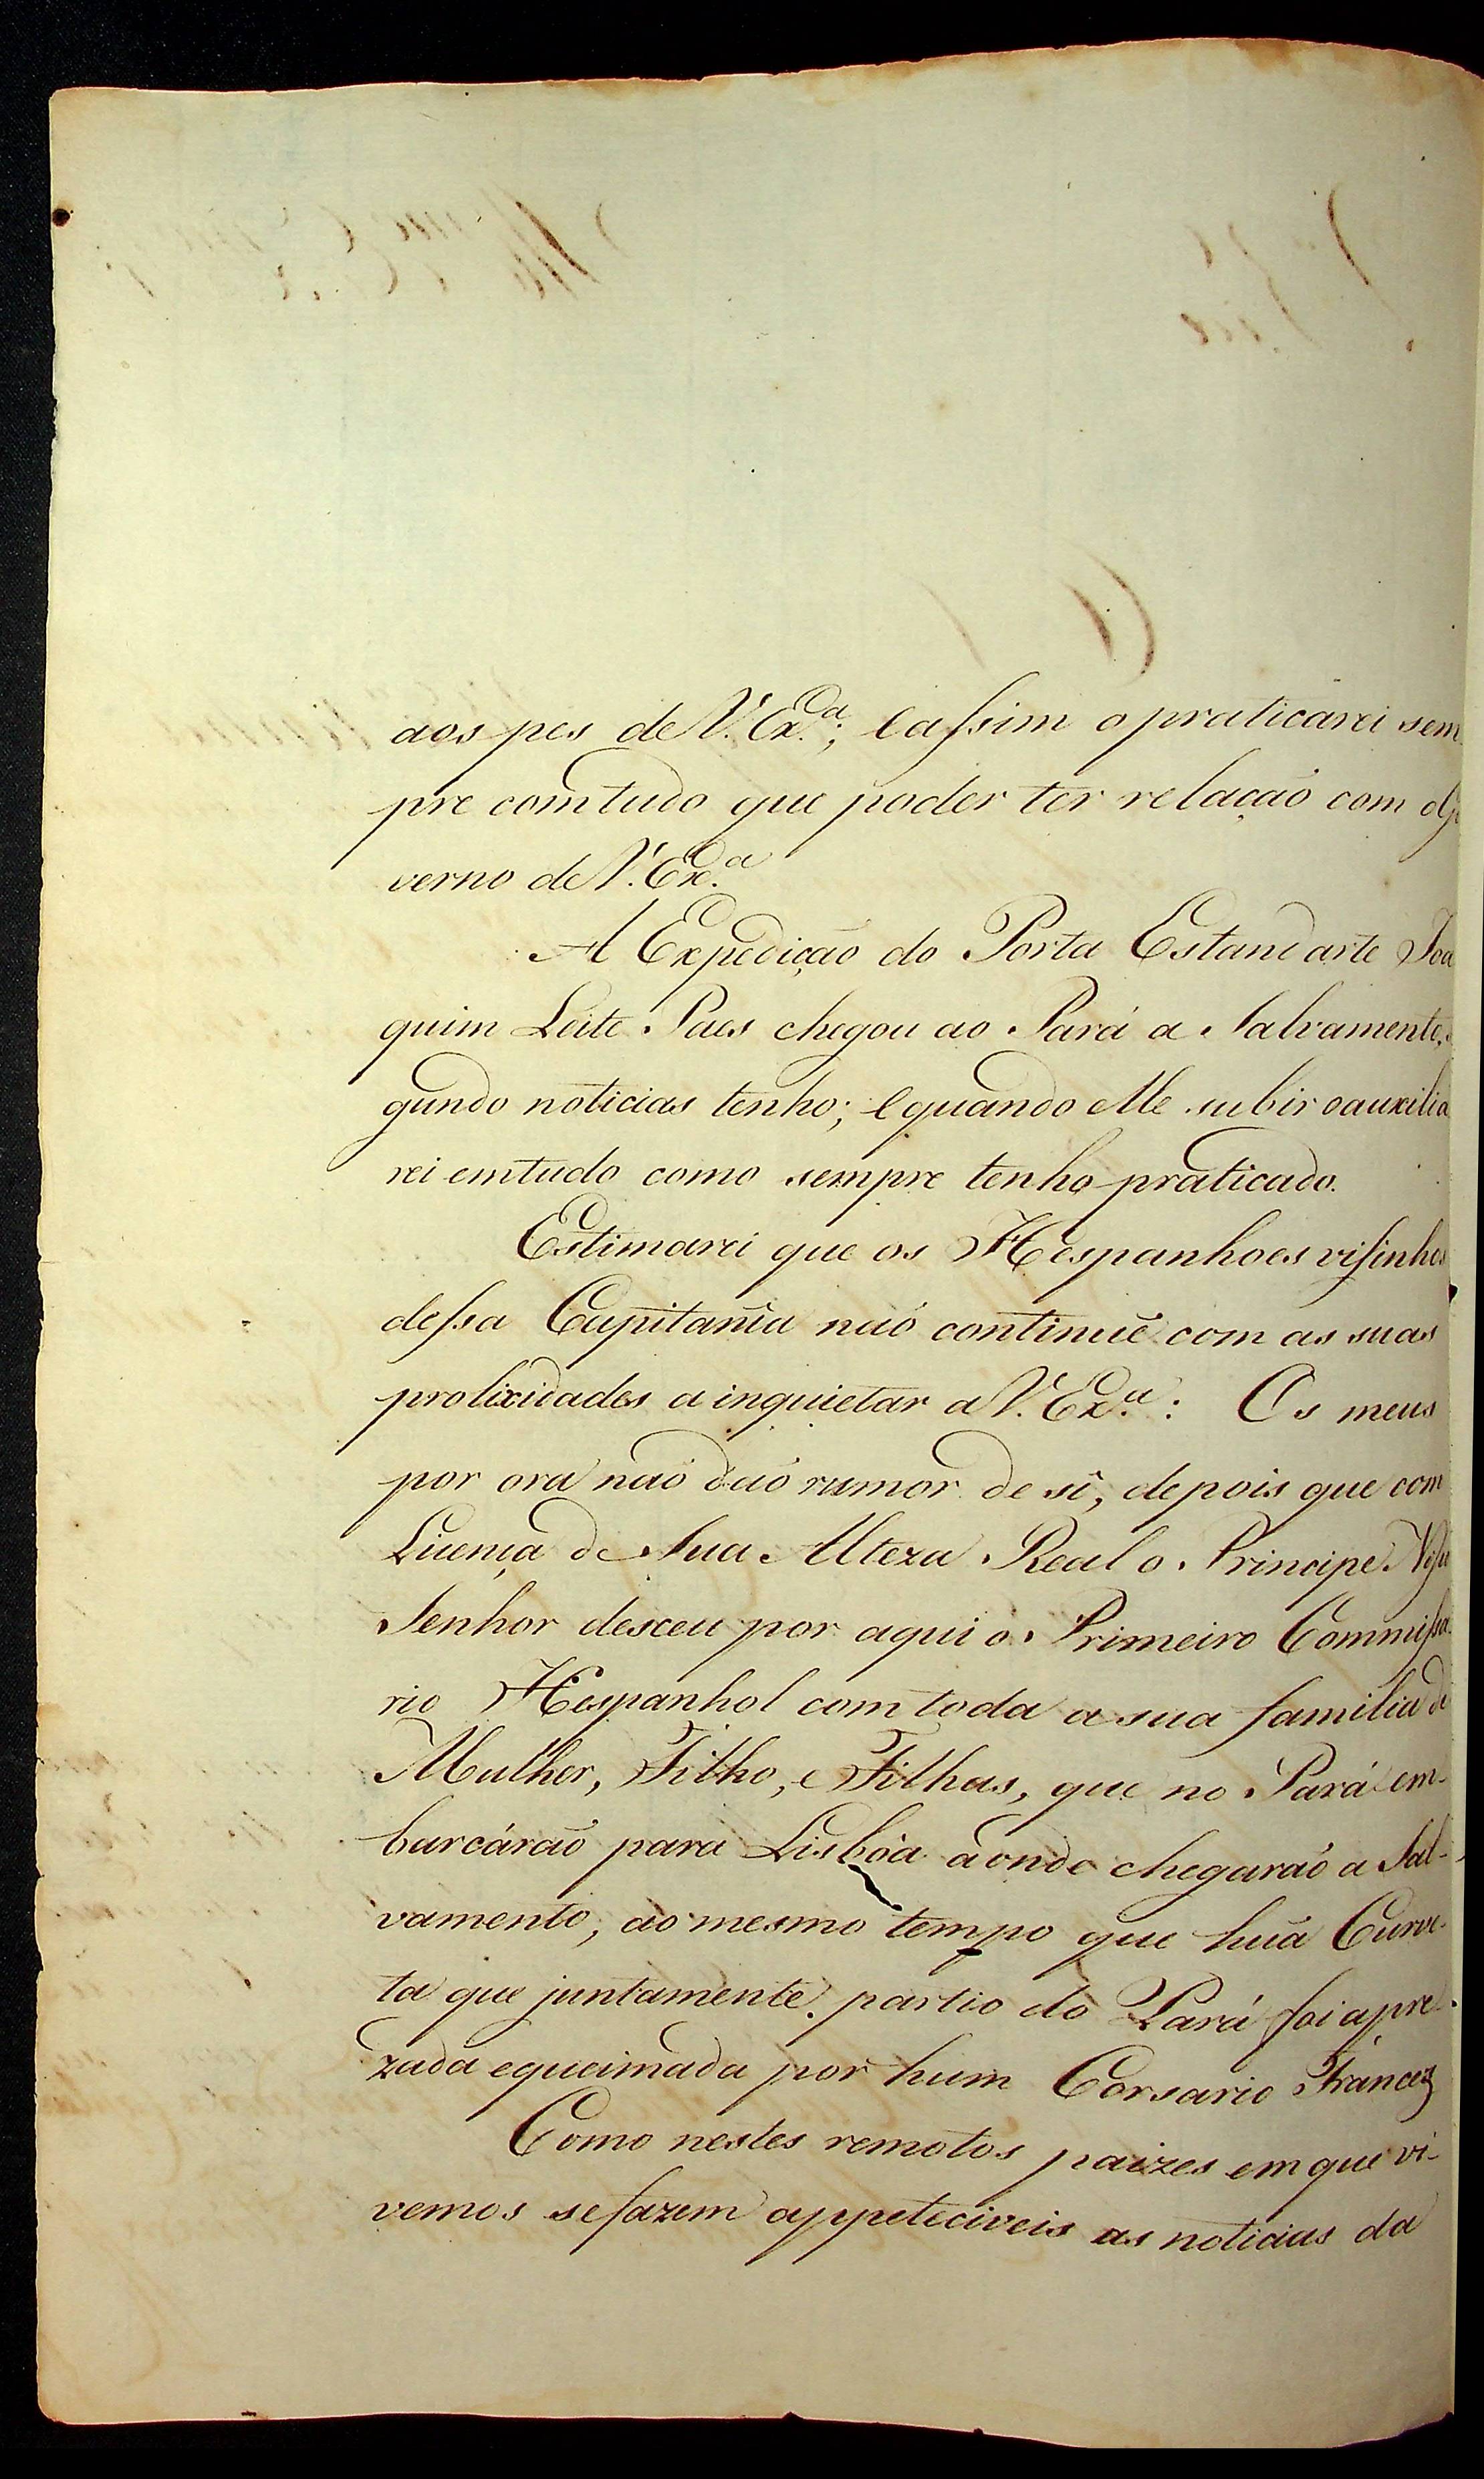 aos pes de V. Ex.ª; e assim o praticarei sem
pre com tudo que poder ter relação com o Go
verno de V. Ex.ª
A Expedição do Porta Estandarte Joa
quim Leite Paes chegou ao Pará a Salvamento, se
gundo noticias tenho; e quando elle subir o auxilia
rei em tudo como sempre tenho praticado.
Estimarei que os Hespanhoes visinhos
dessa Capitanîa naó continuẽ com as suas
prolixidades a inquietar a V. Ex.ª: Os meus
por ora naó daó rumor de sî, depois que com
Licença de Sua Alteza Real o Principe N.
Senhor desceu por aqui o Primeiro Commissa
rio Hespanhol com toda a sua familia de
Mulher, Filho, e Filhas, que no Pará em-
barcárão para Lisbôa aonde chegaraó a Sal-
vamento, ao mesmo tempo que huã Curve-
ta que juntamente partio do Pará foi apre-
zada e queimada por hum Corsario Francez
Como nestes remotos paizes em que vi-
vemos se fazem appeteciveis as noticias da